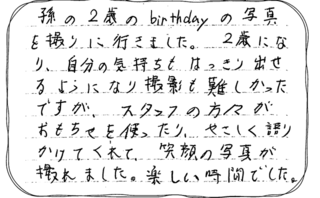 孫の2歳のbirthdayの写真
を撮りに行きました。2歳にな
り、自分の気持ちもはっきり出せ
るようになり撮影も難しかった
ですが、スタッフの方々が
おもちゃを使ったり、やさしく語り
かけてくれて、笑顔の写真が
撮れました。楽しい時間でした。